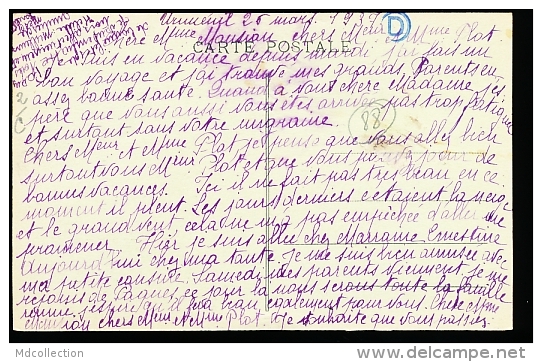 25 mars. 1937
D
CARTE POSTALE
Chère Mme Mansion, chers Meur et Mme Plot
Je suis en vacance depuis mardi j'ai fais un
bon voyage et j'ai trouvé mes grands Parents en
assez bonne santé. Quand à vous chère Madame j'es
père que vous aussi vous êtes arrivée pas trop fatiguée
et surtout sans votre migraine.
2/C
88
Chers Meur et Mme Plot je pense que vous allez bien
surtout vous Meur Plot et que vous de
bonnes vacances. Ici il ne fait pas très beau en ce
moment il pleut. Les jours derniers c'étaient la neige
et le grand vent cela ne m'a pas empêchée d'aller me
promener. Hier je suis allée chez Marraine Ernestine
aujourd'hui chez ma tante. Je me suis bien amusée avec
ma petite cousine. Samedi mes parents viennent je me
réjouis de Pâques ce jour là nous serons toute la famille
réunie. J'espère qu'il fera beau également pour vous. Chère Mme
Mansion chers Meur et Mme Plot. Je souhaite que vous passiez
Mdcollection
delcampe.net